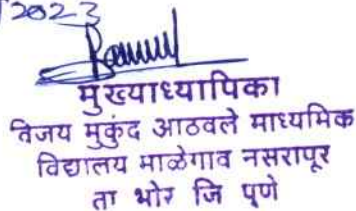 2023
मुख्याध्यापिका
विजय मुकुंद आठवले माध्यमिक
विद्यालय माळेगाव नसरापूर
ता भोर जि पुणे